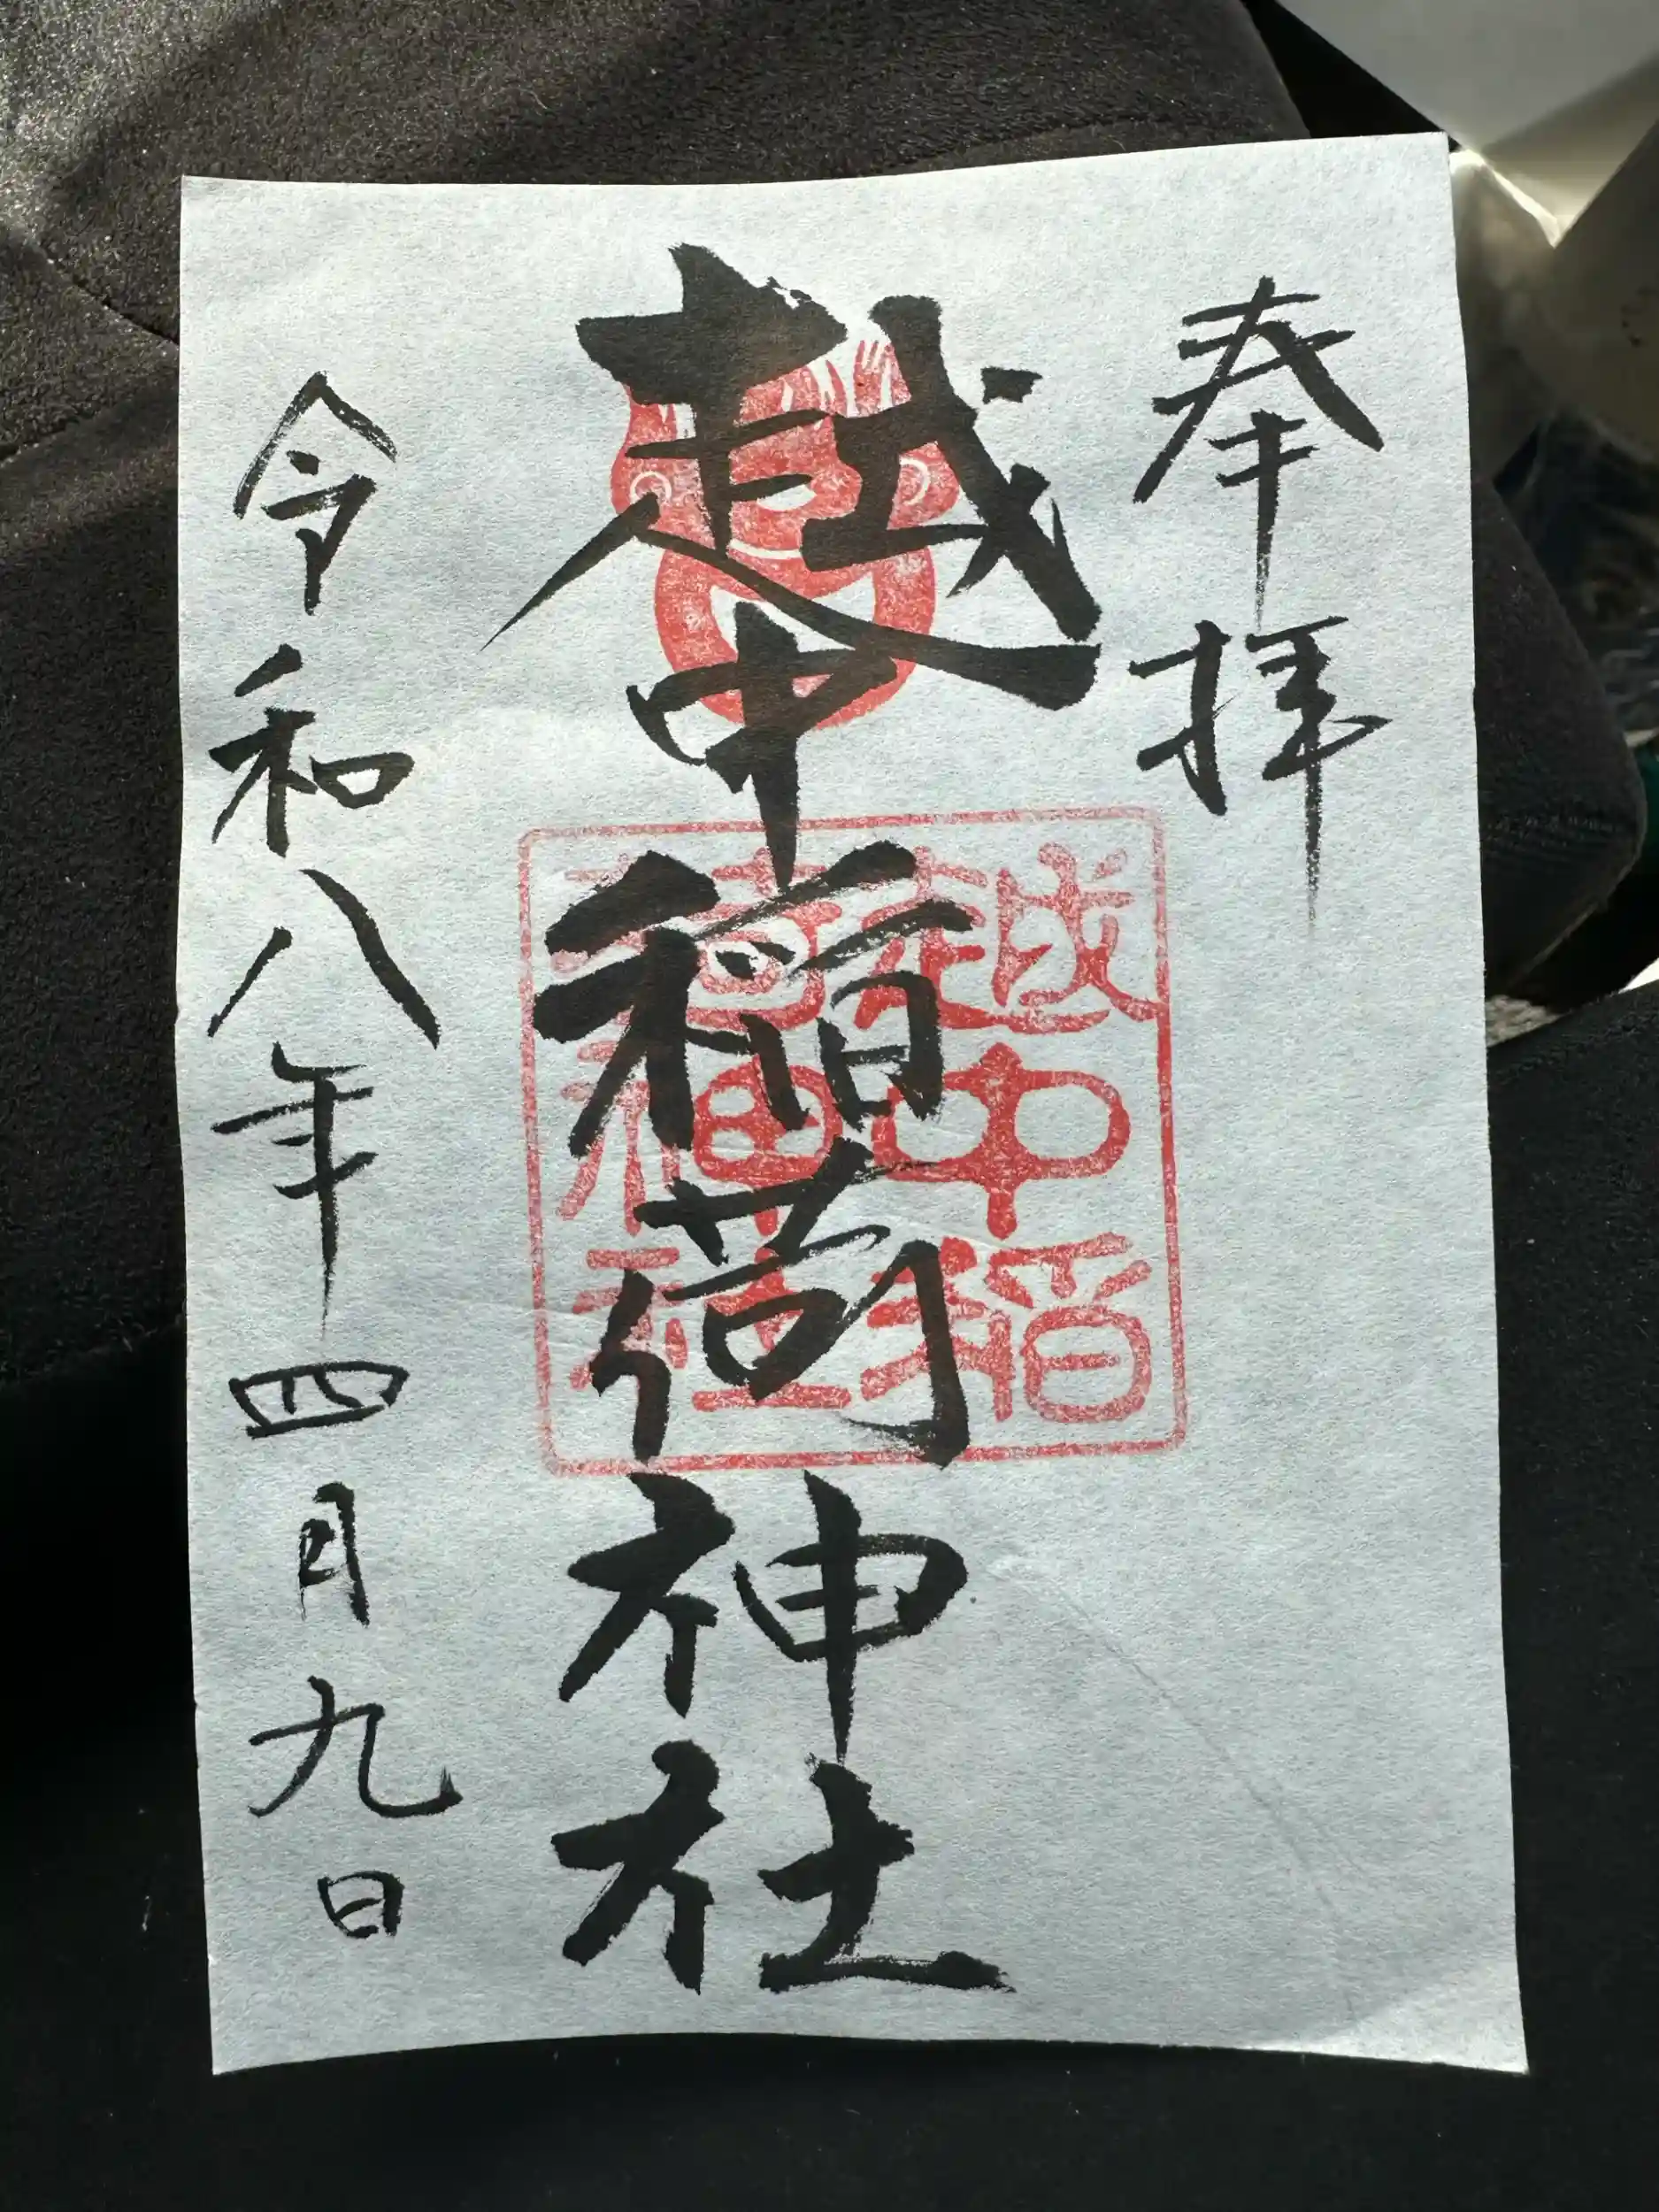 奉拝
越中稲荷神社
越中稲荷神社
令和八年四月九日